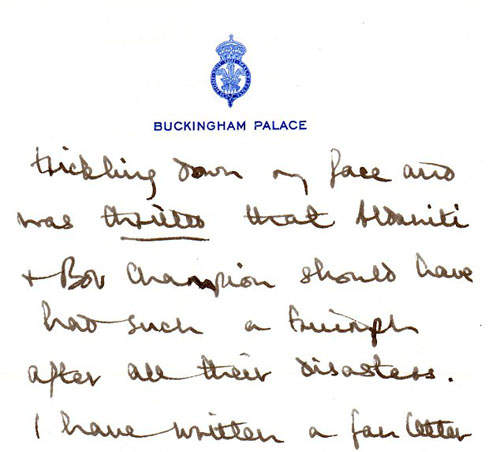 BUCKINGHAM PALACE
trickling down my face and
was thrilled that Aldaniti
+ Bob Champion should have
had such a triumph
after all their disasters.
I have written a fan letter